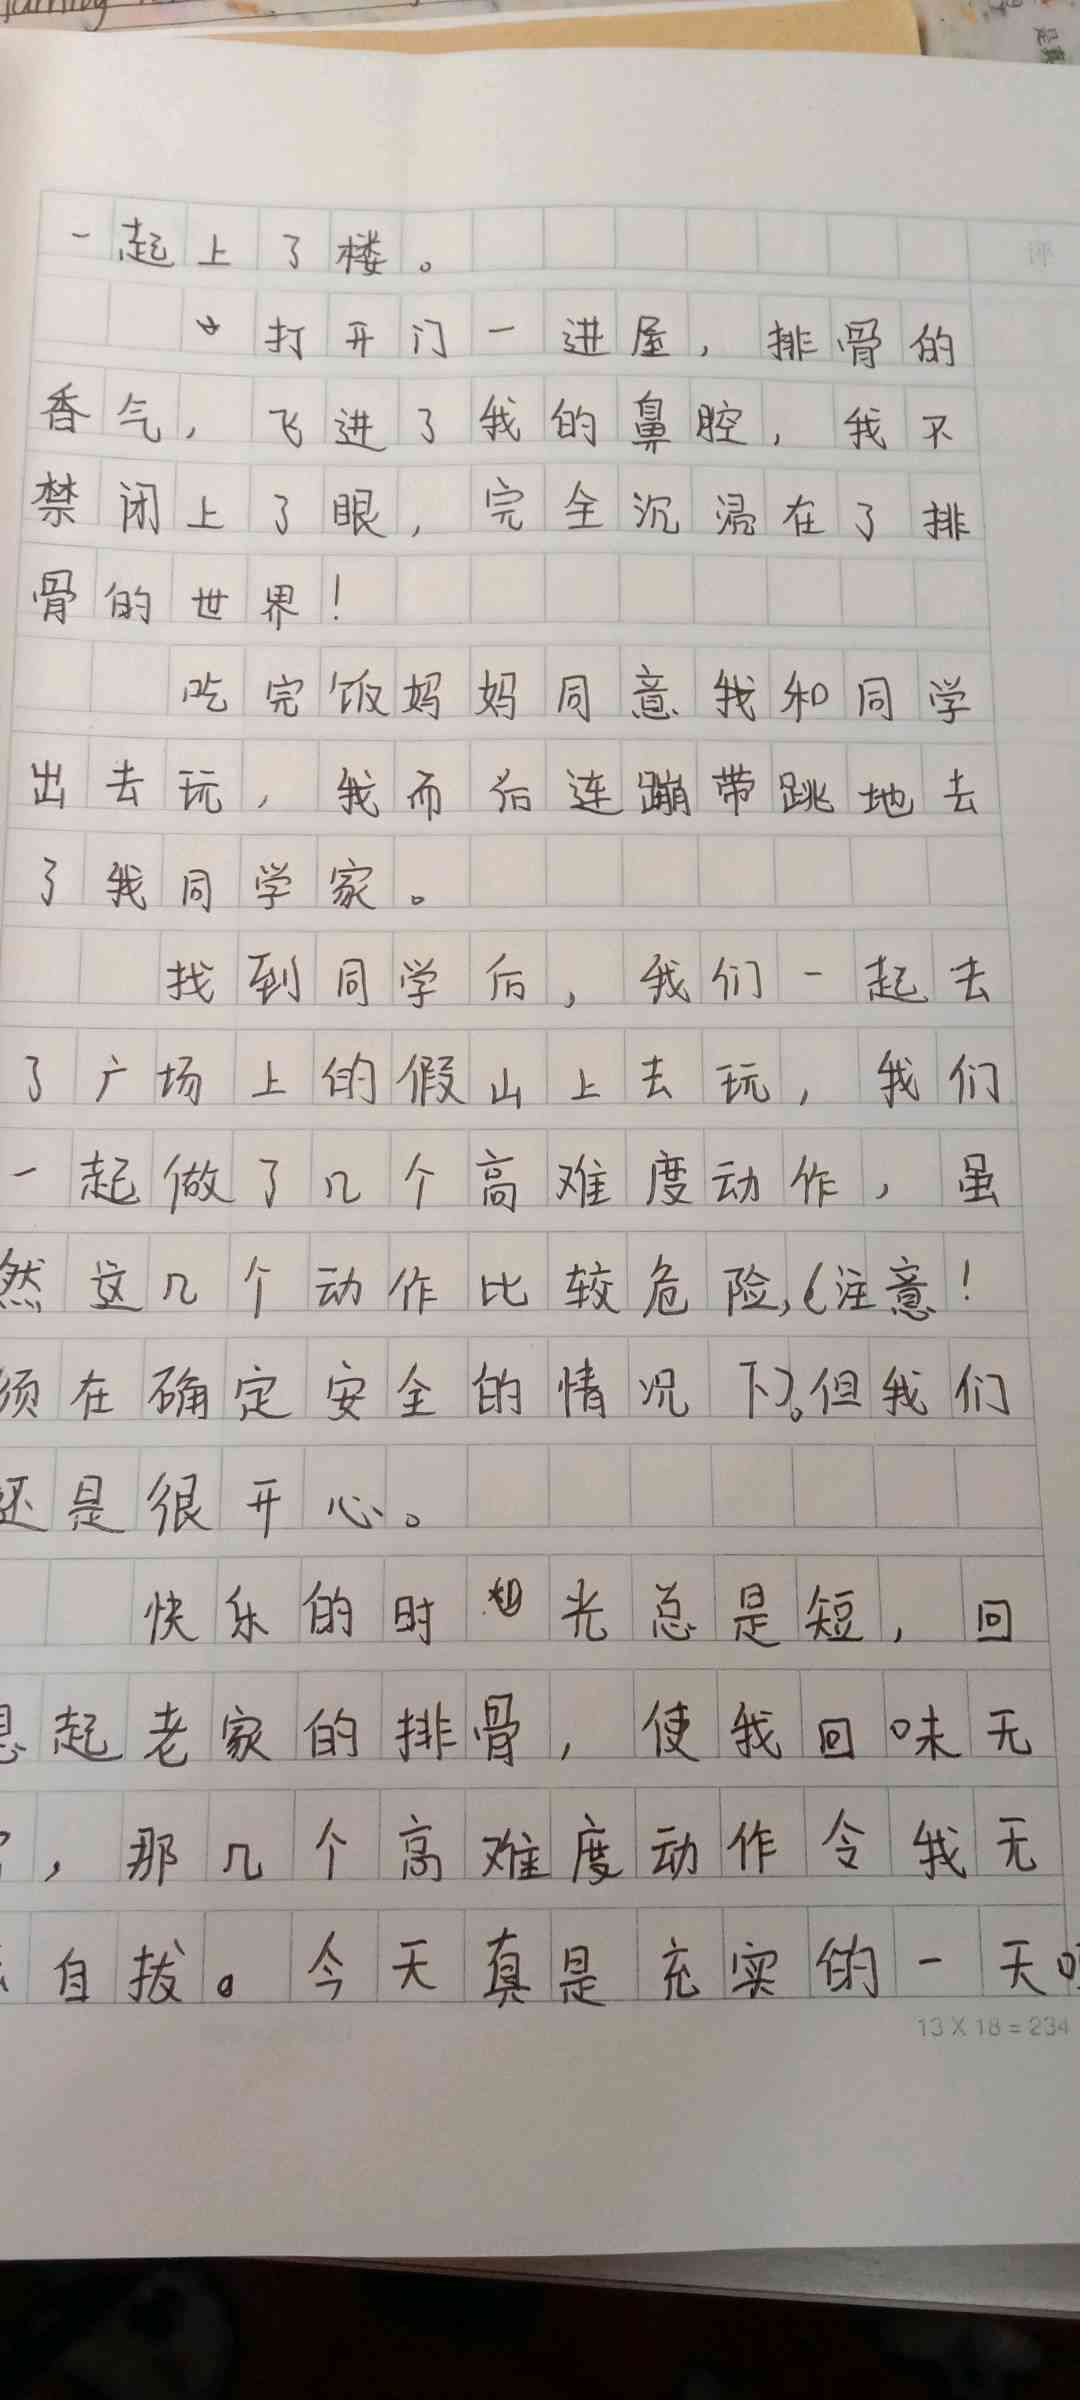 一起上了楼。
打开门一进屋，排骨的
香气，飞进了我的鼻腔，我不
禁闭上了眼，完全沉浸在了排
骨的世界！
吃完饭妈妈同意我和同学
出去玩，我而后连蹦带跳地去
了我同学家。
找到同学后，我们一起去
了广场上的假山上去玩，我们
一起做了几个高难度动作，虽
然这几个动作比较危险，（注意！
须在确定安全的情况下）。但我们
还是很开心。
快乐的时光总是短，回
想起老家的排骨，使我回味无
，那几个高难度动作令我无
自拔。今天真是充实的一天
13 X 18 = 234